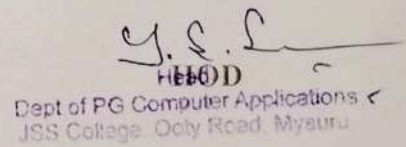 HOD
Head
Dept of PG Computer Applications
JSS College, Ooty Road, Mysuru